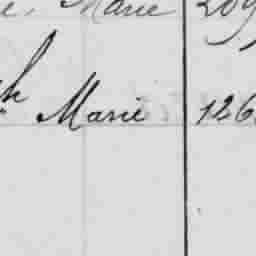 Marie 209
Marie 126